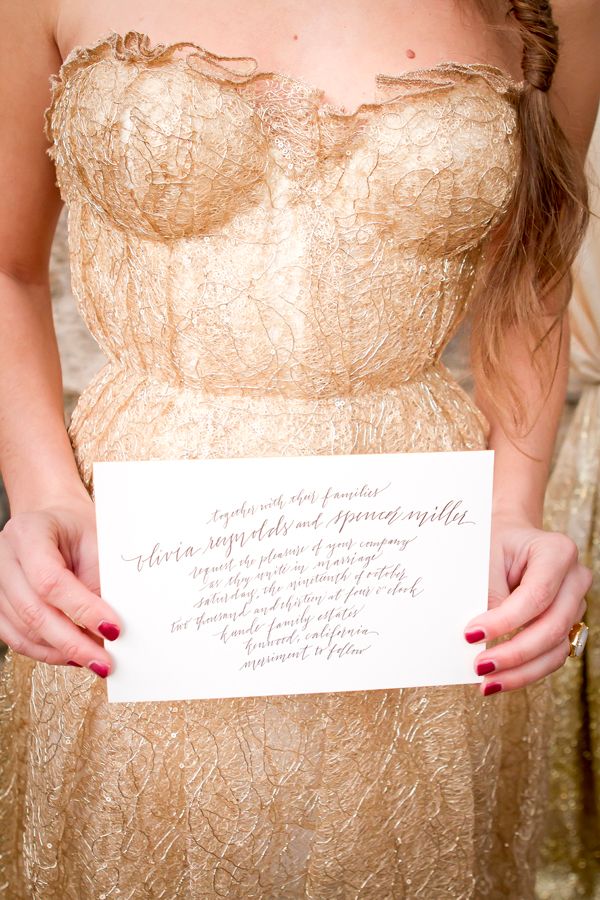 together with their families
olivia reynolds and spencer miller
request the pleasure of your company
as they unite in marriage
saturday, the nineteenth of october
two thousand and thirteen at four o'clock
kunde family estates
kenwood, california
merriment to follow